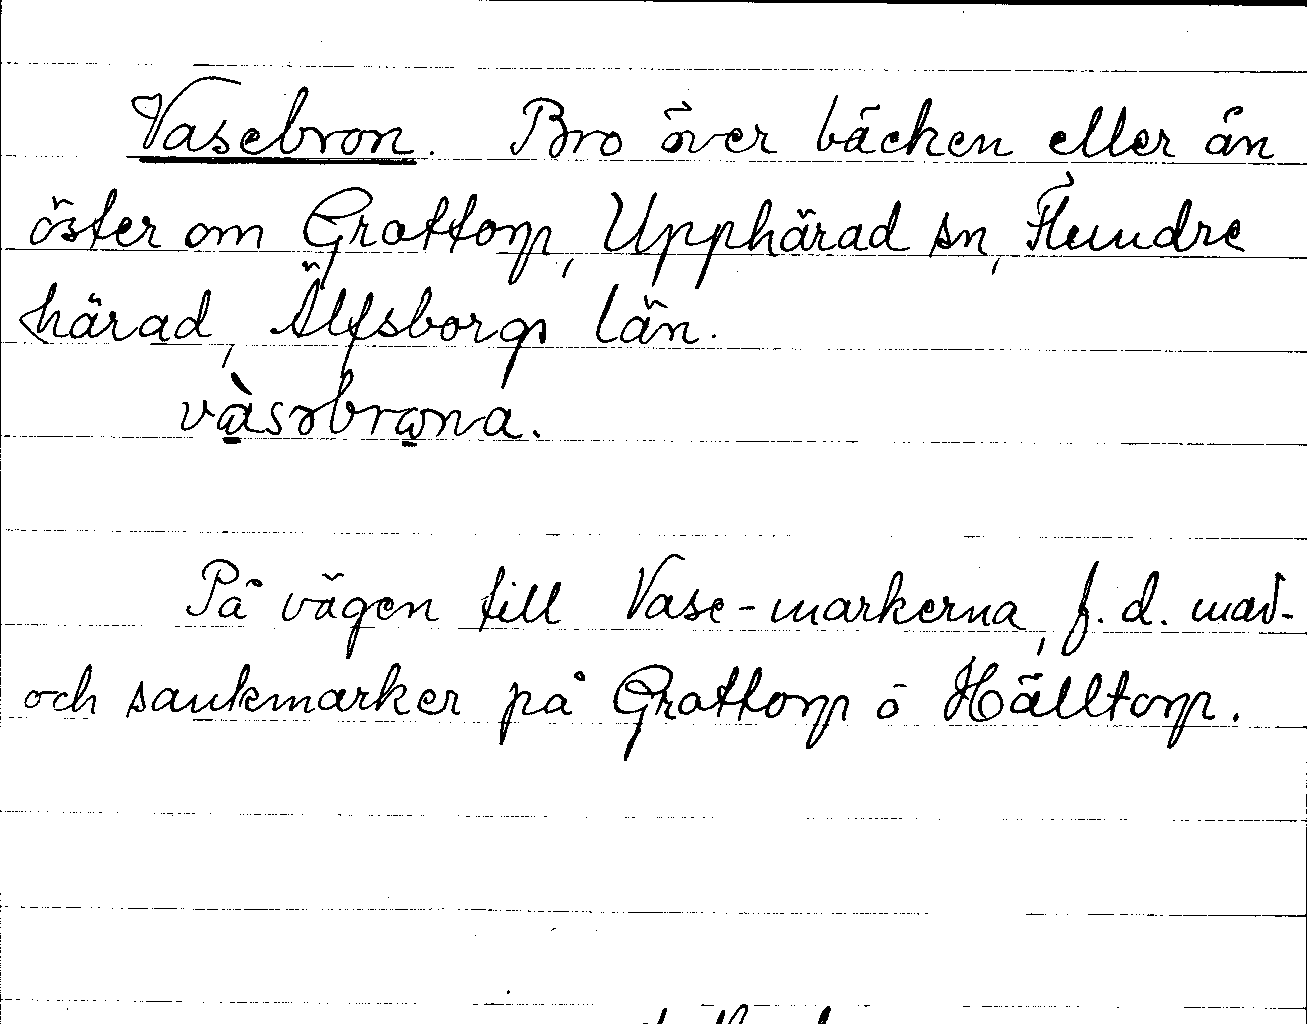 Vasebron. Bro över bäcken eller ån
öster om Grattorp, Upphärad sn, Flundre
härad, Älfsborgs län.
vàsəbrɷna.
På vägen till Vase-markerna, f.d. mad-
och sankmarker på Grattorp o Hälltorp.